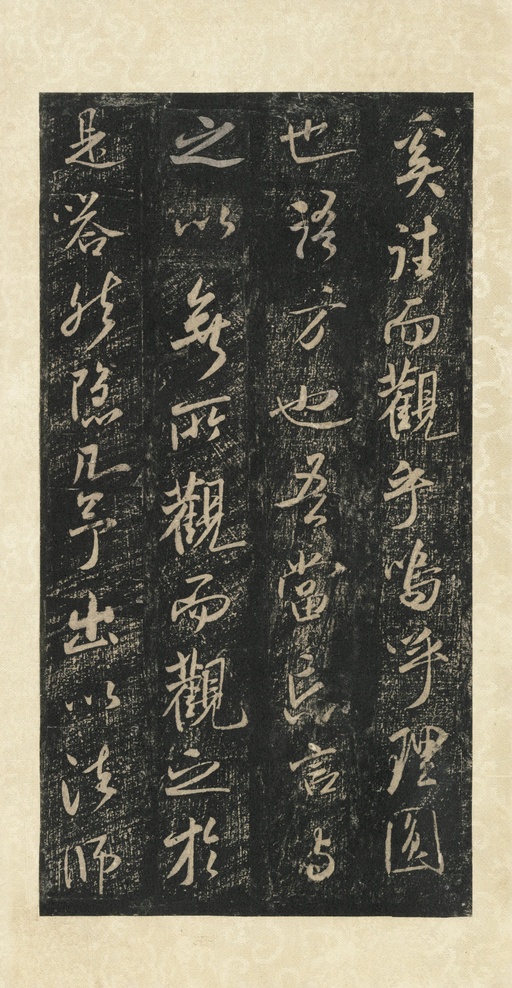 奚往而觀乎嗚呼理圓
也語方也吾當忘言與
之以無所觀而觀之於
是嗒然隱几予出以法師